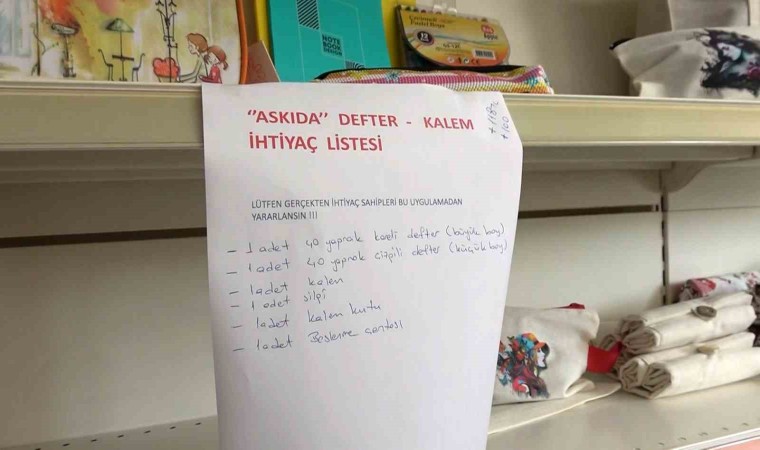 NOTE
BOOK
DESIGN
Pastel Boya
12
"ASKIDA" DEFTER - KALEM
İHTİYAÇ LİSTESİ
LÜTFEN GERÇEKTEN İHTİYAÇ SAHİPLERİ BU UYGULAMADAN
YARARLANSIN !!!
- 1 adet 40 yaprak kareli defter (büyük boy)
- 1 adet 40 yaprak çizgili defter (küçük boy)
- 1 adet kalem
- 1 adet silgi
- 1 adet kalem kutu
- 1 adet Beslenme çantası
+100